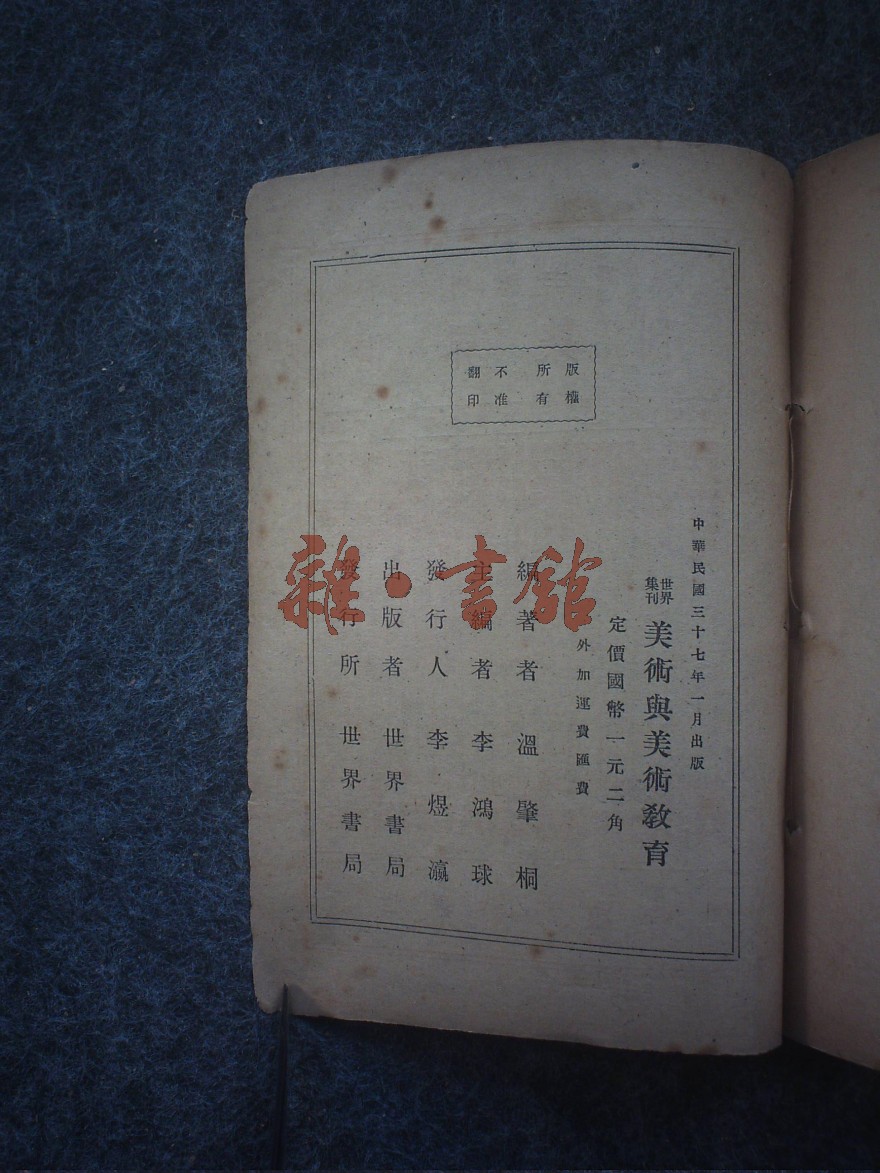 版權所有
不准翻印
中華民國三十七年一月出版
世界集刊
美術與美術教育
定價國幣一元二角
外加運費匯費
編著者 溫肇桐
主編者 李鴻球
發行人 李煜瀛
出版者 世界書局
發行所 世界書局
雜·書館